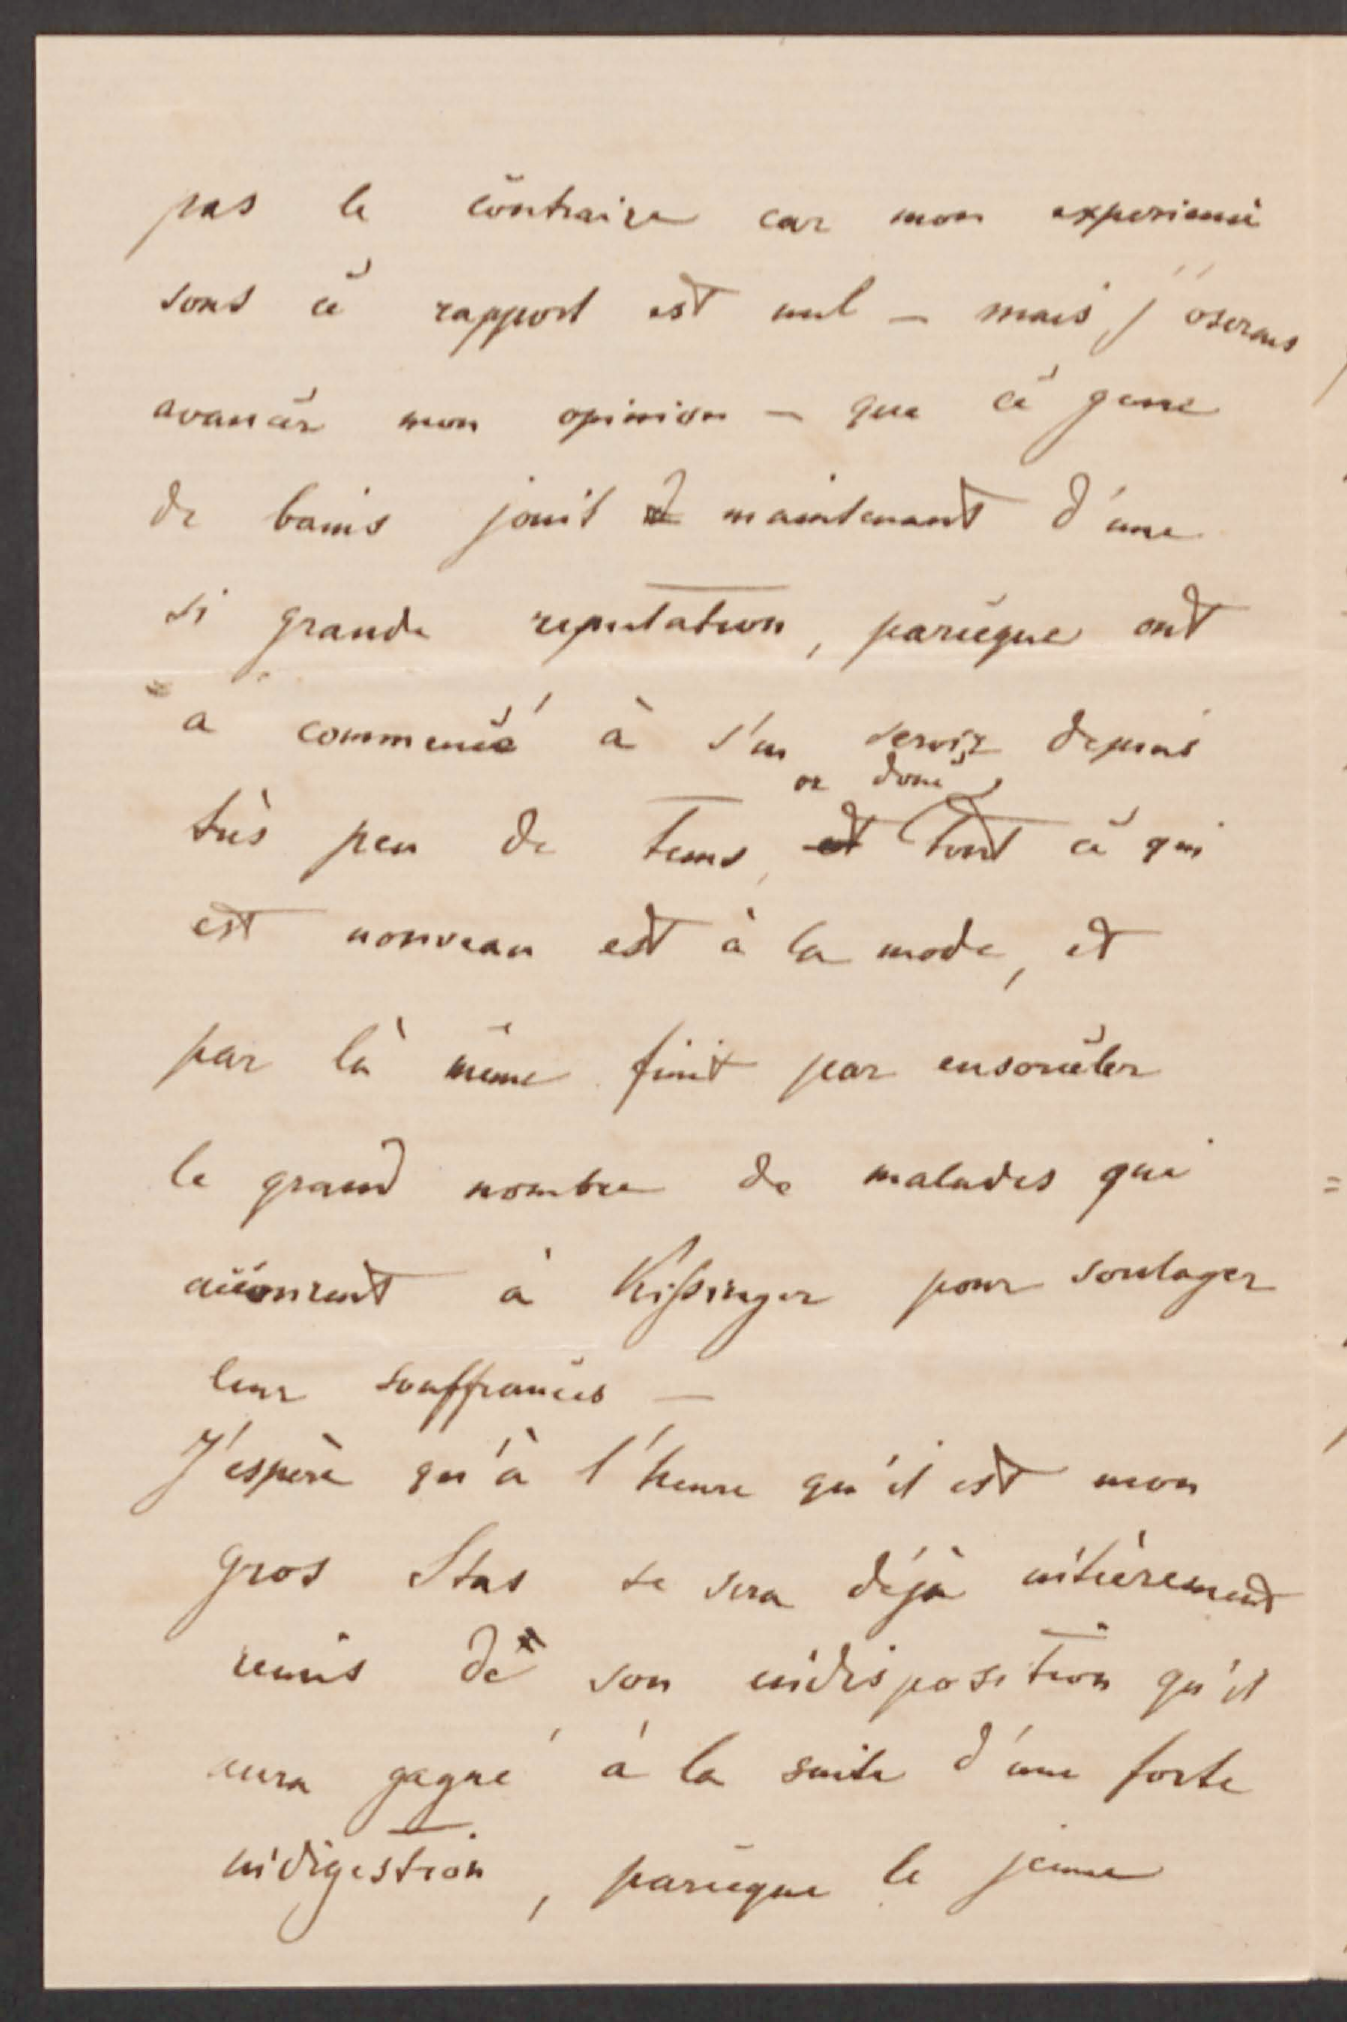 pas le contraire car mon experience
sous ce rapport est nul – mais j'oserais
avancer mon opinion – que ce genre
de bains jouit maintenant d'une
si grande reputation, parceque ont
a commencé à s'en servir depuis
très peu de tems, et or donc tout ce qui
est nouveau est à la mode, et
par là même finit par ensorceler
le grand nombre de malades qui
accourent à Kissinger pour soulager
leur souffrances –
J'espère qu'à l'heure qu'il est mon
gros Stas se sera déjà entièrement
remis de son indisposition qu'il
aura gagné à la suite d'une forte
indigestion, parceque le jeune